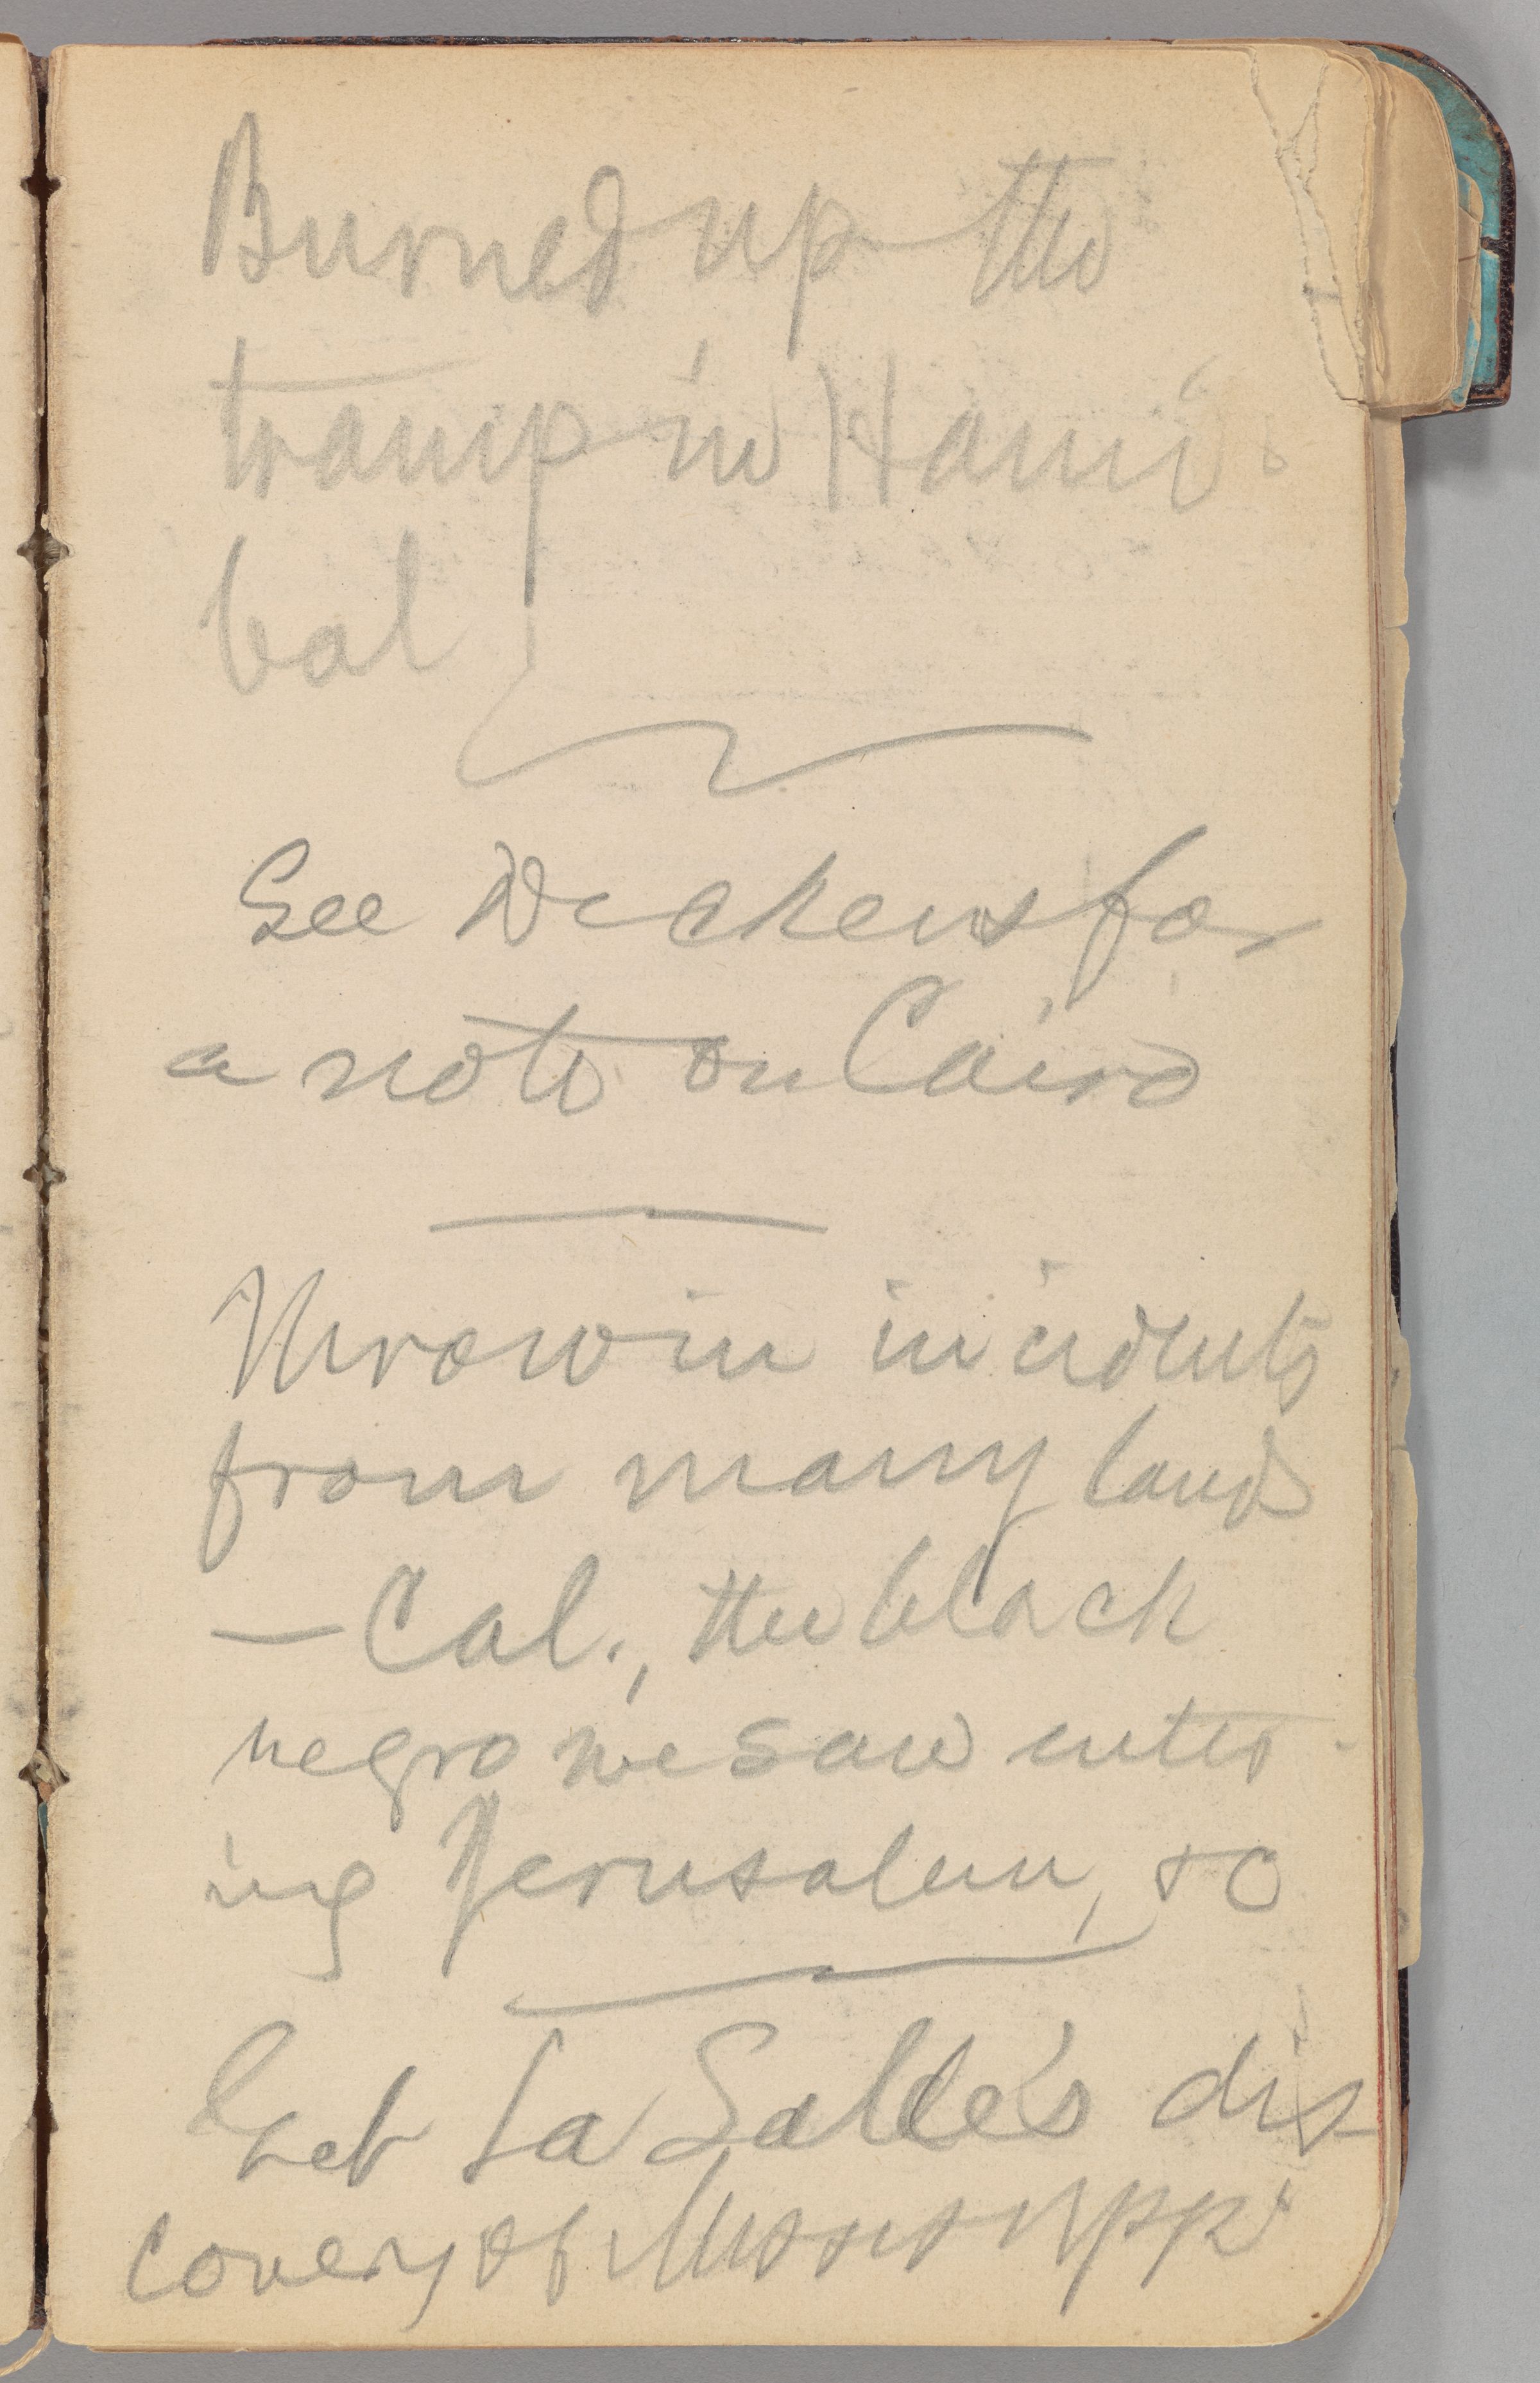 Burned up the
tramp in Hanni-
bal
See Dickens for
a note on Cairo
Throw in incidents
from many lands
—Cal., the black
negro we saw enter-
ing Jerusalem, &c
Get La Salle's dis
covery of Mississippi